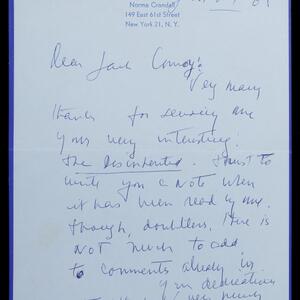 Norma Crandall
149 East 61st Street
New York 21, N. Y.
Dear Jack Conroy:
Very many
thanks for sending me
your very interesting
The Disinherited. I must to
write you a note when
it has been read by me.
though, doubtless, there is
not much to add
to comments already in.
Your dedication